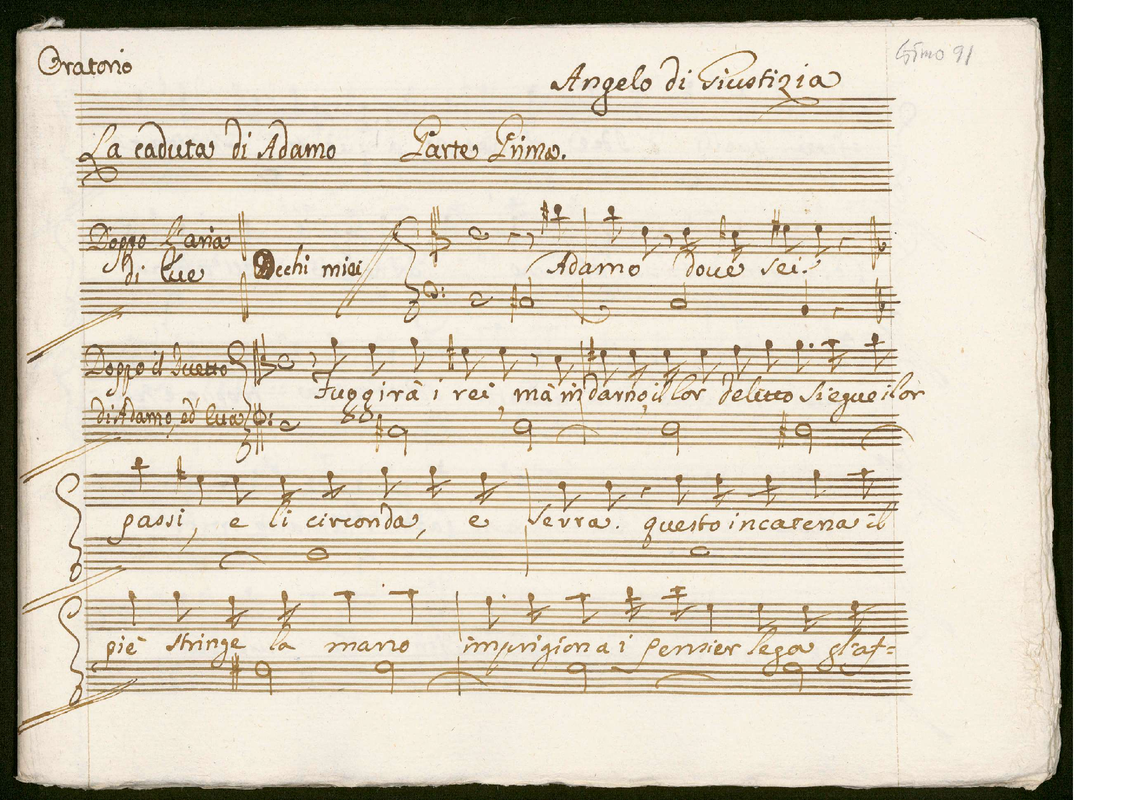 Oratorio
Gimo 91
Angelo di Giustizia
La caduta di Adamo Parte Prima.
Doppo l'aria
di Eue
Occhi miei
Adamo doue sei?
Doppo il Duetto
di Adamo, ed Eua
Fuggirà i rei, mà indarno, il lor delitto Siegue i lor
passi, e li circonda, e serra. questo incatena il
piè stringe la mano imprigiona i pensier lega gl'af=